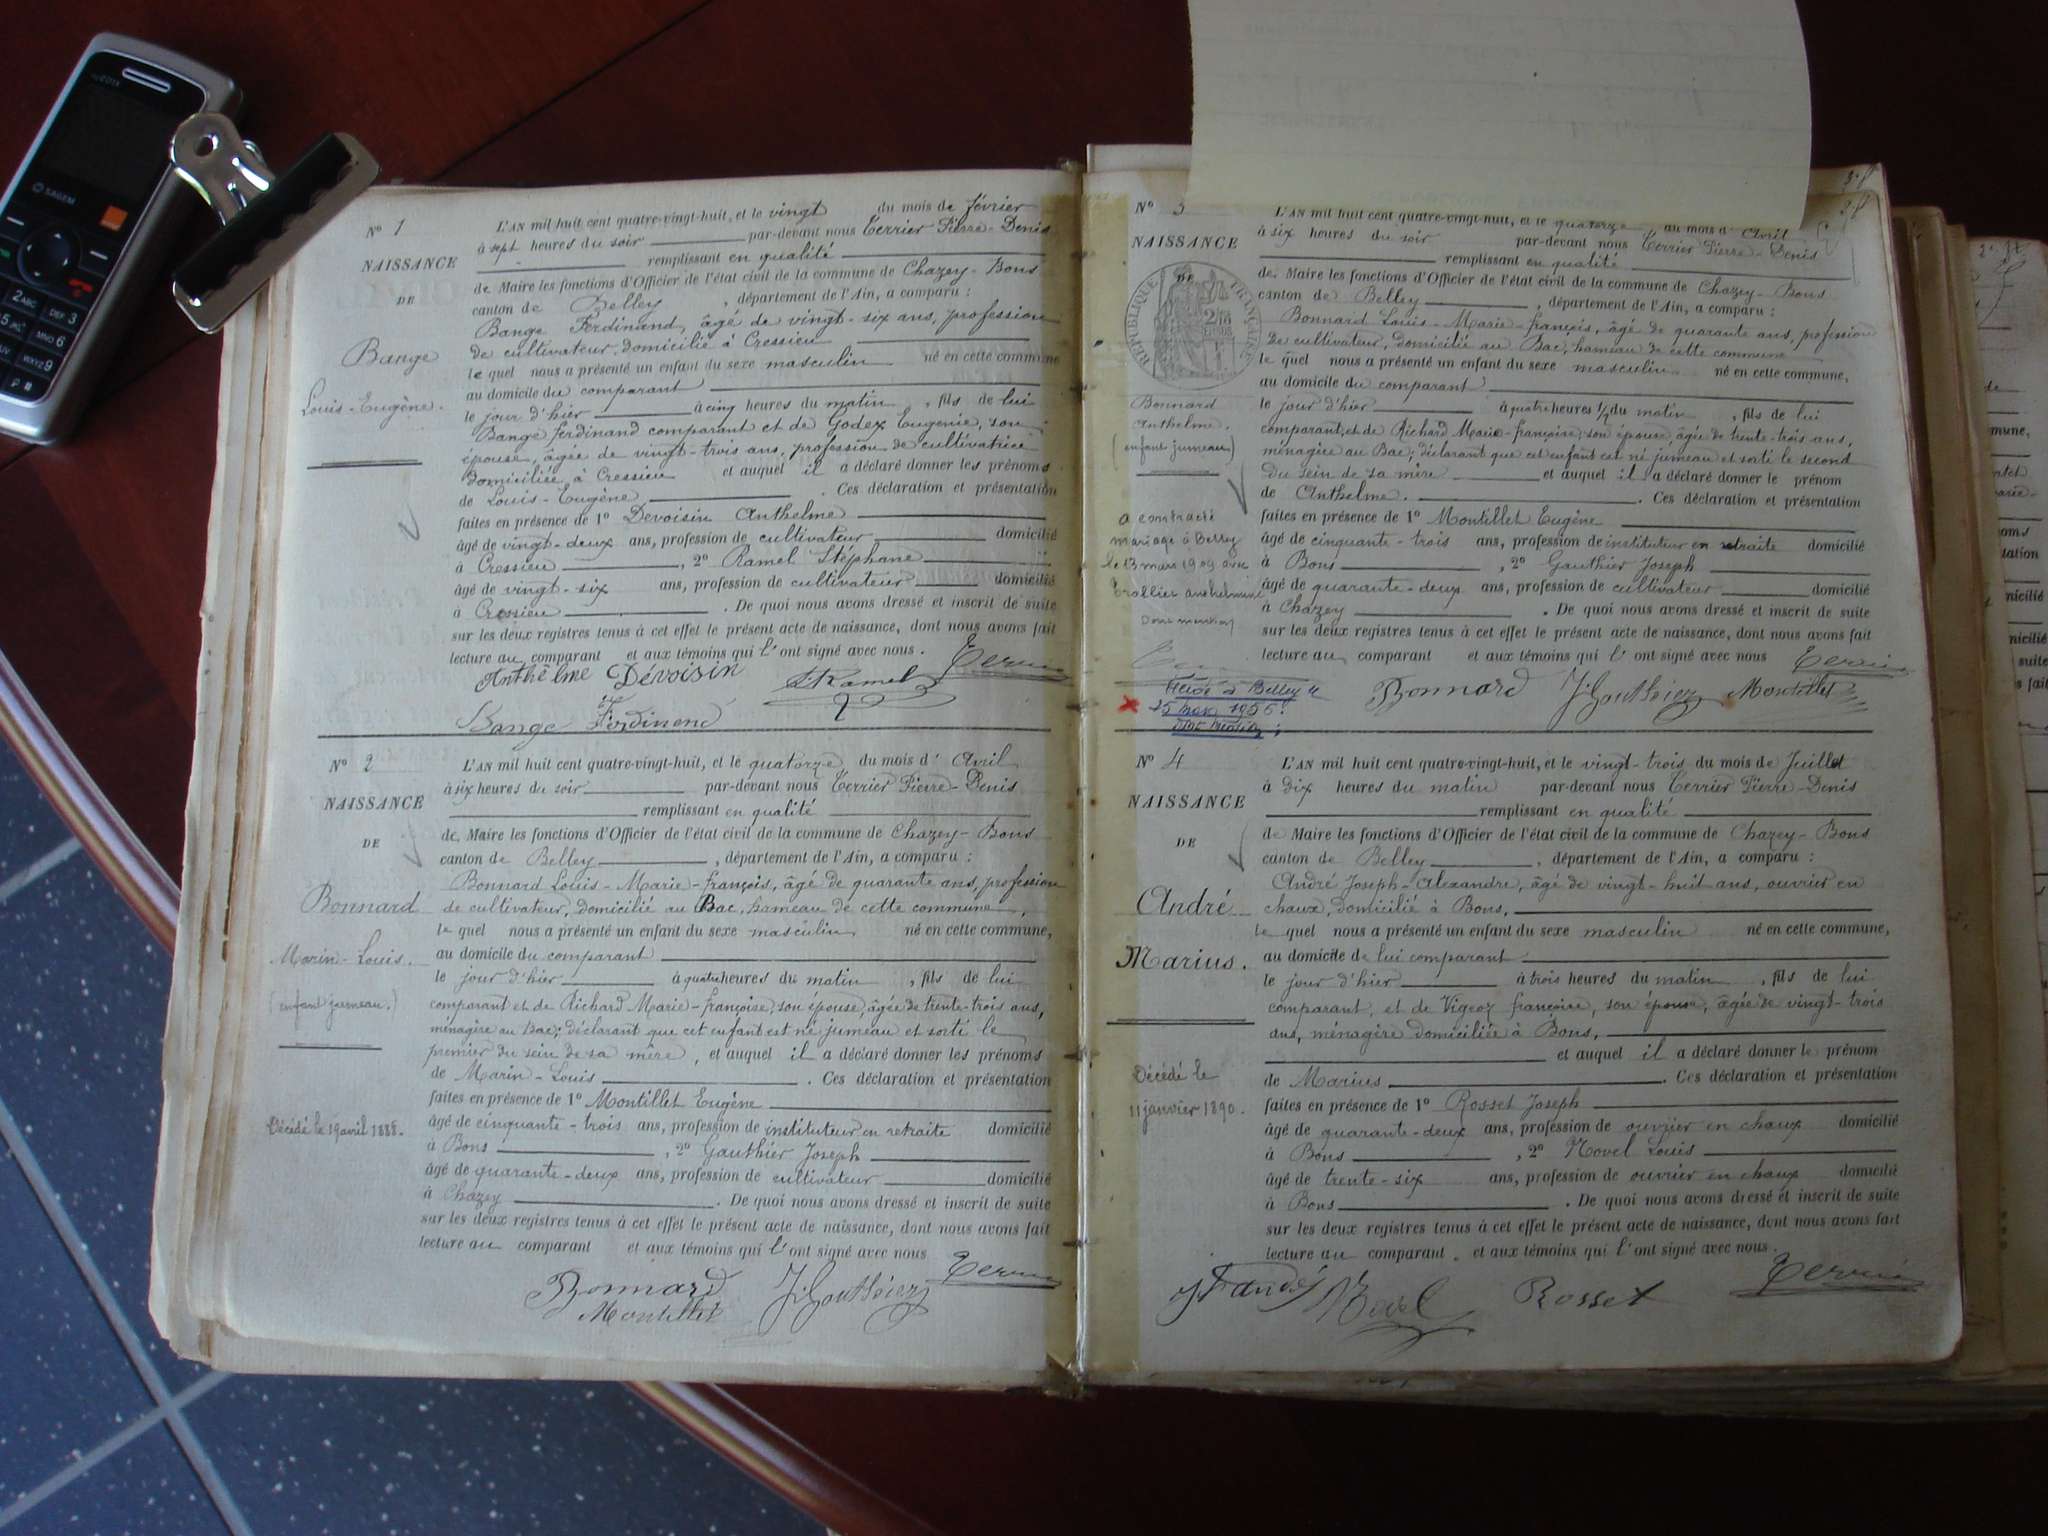 SAGEM
2 ABC
DEF 3
MNO 6
WXYZ 9
N° 1
NAISSANCE
DE
Bange
Louis-Eugène.
L'AN mil huit cent quatre-vingt-huit, et le vingt du mois de février
à sept heures du soir par-devant nous Terrier Pierre-Denis
remplissant en qualité
de Maire les fonctions d'Officier de l'état civil de la commune de Chazey-Bons
canton de Belley, département de l'Ain, a comparu :
Bange Ferdinand, âgé de vingt-six ans, profession
de cultivateur, domicilié à Cressieu
le quel nous a présenté un enfant du sexe masculin né en cette commune
au domicile du comparant
le jour d'hier à cinq heures du matin, fils de lui
Bange ferdinand comparant et de Godex Eugénie, son
épouse, âgée de vingt-trois ans, profession de cultivatrice
domiciliée à Cressieu et auquel il a déclaré donner les prénoms
de Louis-Eugène. Ces déclaration et présentation
faites en présence de 1° Devoisin Anthelme
âgé de vingt-deux ans, profession de cultivateur domicilié
à Cressieu, 2° Ramel Stéphane
âgé de vingt-six ans, profession de cultivateur domicilié
à Cressieu. De quoi nous avons dressé et inscrit de suite
sur les deux registres tenus à cet effet le présent acte de naissance, dont nous avons fait
lecture au comparant et aux témoins qui l'ont signé avec nous.
Anthelme Dévoisin Ramel Terrier
Bange Ferdinend
N° 2
NAISSANCE
DE
Bonnard
Marin-Louis.
(enfant jumeau.)
Décédé le 19 avril 1888.
L'AN mil huit cent quatre-vingt-huit, et le quatorze du mois d'Avril
à six heures du soir par-devant nous Terrier Pierre-Denis
remplissant en qualité
de Maire les fonctions d'Officier de l'état civil de la commune de Chazey-Bons
canton de Belley, département de l'Ain, a comparu :
Bonnard Louis-Marie-françois, âgé de quarante ans, profession
de cultivateur, domicilié au Bac, hameau de cette commune,
le quel nous a présenté un enfant du sexe masculin né en cette commune,
au domicile du comparant
le jour d'hier à quatre heures du matin, fils de lui
comparant et de Richard Marie-françoise, son épouse, âgée de trente-trois ans,
ménagère au Bac; déclarant que cet enfant est né jumeau et sorti le
premier du sein de sa mère, et auquel il a déclaré donner les prénoms
de Marin-Louis. Ces déclaration et présentation
faites en présence de 1° Montillet Eugène
âgé de cinquante-trois ans, profession de instituteur en retraite domicilié
à Bons, 2° Gauthier Joseph
âgé de quarante-deux ans, profession de cultivateur domicilié
à Chazey. De quoi nous avons dressé et inscrit de suite
sur les deux registres tenus à cet effet le présent acte de naissance, dont nous avons fait
lecture au comparant et aux témoins qui l'ont signé avec nous
Bonnard J. Gouthéiez Terrier
Montillet
N° 3
NAISSANCE
DE
RÉPUBLIQUE FRANÇAISE
Bonnard
Anthelme.
(enfant jumeau)
a contracté
mariage à Belley
le 13 mars 1909 avec
Dont mention
Décédé à Belley
25 1956
Dont mention
L'AN mil huit cent quatre-vingt-huit, et le quatorze du mois d'Avril
à six heures du soir par-devant nous Terrier Pierre-Denis
remplissant en qualité
de Maire les fonctions d'Officier de l'état civil de la commune de Chazey-Bons
canton de Belley, département de l'Ain, a comparu :
Bonnard Louis-Marie-françois, âgé de quarante ans, profession
de cultivateur, domicilié au Bac, hameau de cette commune
le quel nous a présenté un enfant du sexe masculin né en cette commune,
au domicile du comparant
le jour d'hier à quatre heures 1/2 du matin, fils de lui
comparant, et de Richard Marie-françoise, son épouse, âgée de trente-trois ans,
ménagère au Bac; déclarant que cet enfant est né jumeau et sorti le second
du sein de sa mère et auquel il a déclaré donner le prénom
de Anthelme. Ces déclaration et présentation
faites en présence de 1° Montillet Eugène
âgé de cinquante-trois ans, profession de instituteur en retraite domicilié
à Bons, 2° Gauthier Joseph
âgé de quarante-deux ans, profession de cultivateur domicilié
à Chazey. De quoi nous avons dressé et inscrit de suite
sur les deux registres tenus à cet effet le présent acte de naissance, dont nous avons fait
lecture au comparant et aux témoins qui l'ont signé avec nous Terrier
Bonnard J. Gouthéiez Montillet
N° 4
NAISSANCE
DE
André
Marius.
Décédé le
11 janvier 1890.
L'AN mil huit cent quatre-vingt-huit, et le vingt-trois du mois de Juillet
à dix heures du matin par-devant nous Terrier Pierre-Denis
remplissant en qualité
de Maire les fonctions d'Officier de l'état civil de la commune de Chazey-Bons
canton de Belley, département de l'Ain, a comparu :
André Joseph-Alexandre, âgé de vingt-huit ans, ouvrier en
chaux, domicilié à Bons,
le quel nous a présenté un enfant du sexe masculin né en cette commune,
au domicile de lui comparant
le jour d'hier à trois heures du matin, fils de lui
comparant, et de Vigeoz françoise, son épouse, âgée de vingt-trois
ans, ménagère domiciliée à Bons,
et auquel il a déclaré donner le prénom
de Marius. Ces déclaration et présentation
faites en présence de 1° Rosset Joseph
âgé de quarante-deux ans, profession de ouvrier en chaux domicilié
à Bons, 2° Novel Louis
âgé de trente-six ans, profession de ouvrier en chaux domicilié
à Bons. De quoi nous avons dressé et inscrit de suite
sur les deux registres tenus à cet effet le présent acte de naissance, dont nous avons fait
lecture au comparant. et aux témoins qui l'ont signé avec nous.
Novel Rosset Terrier